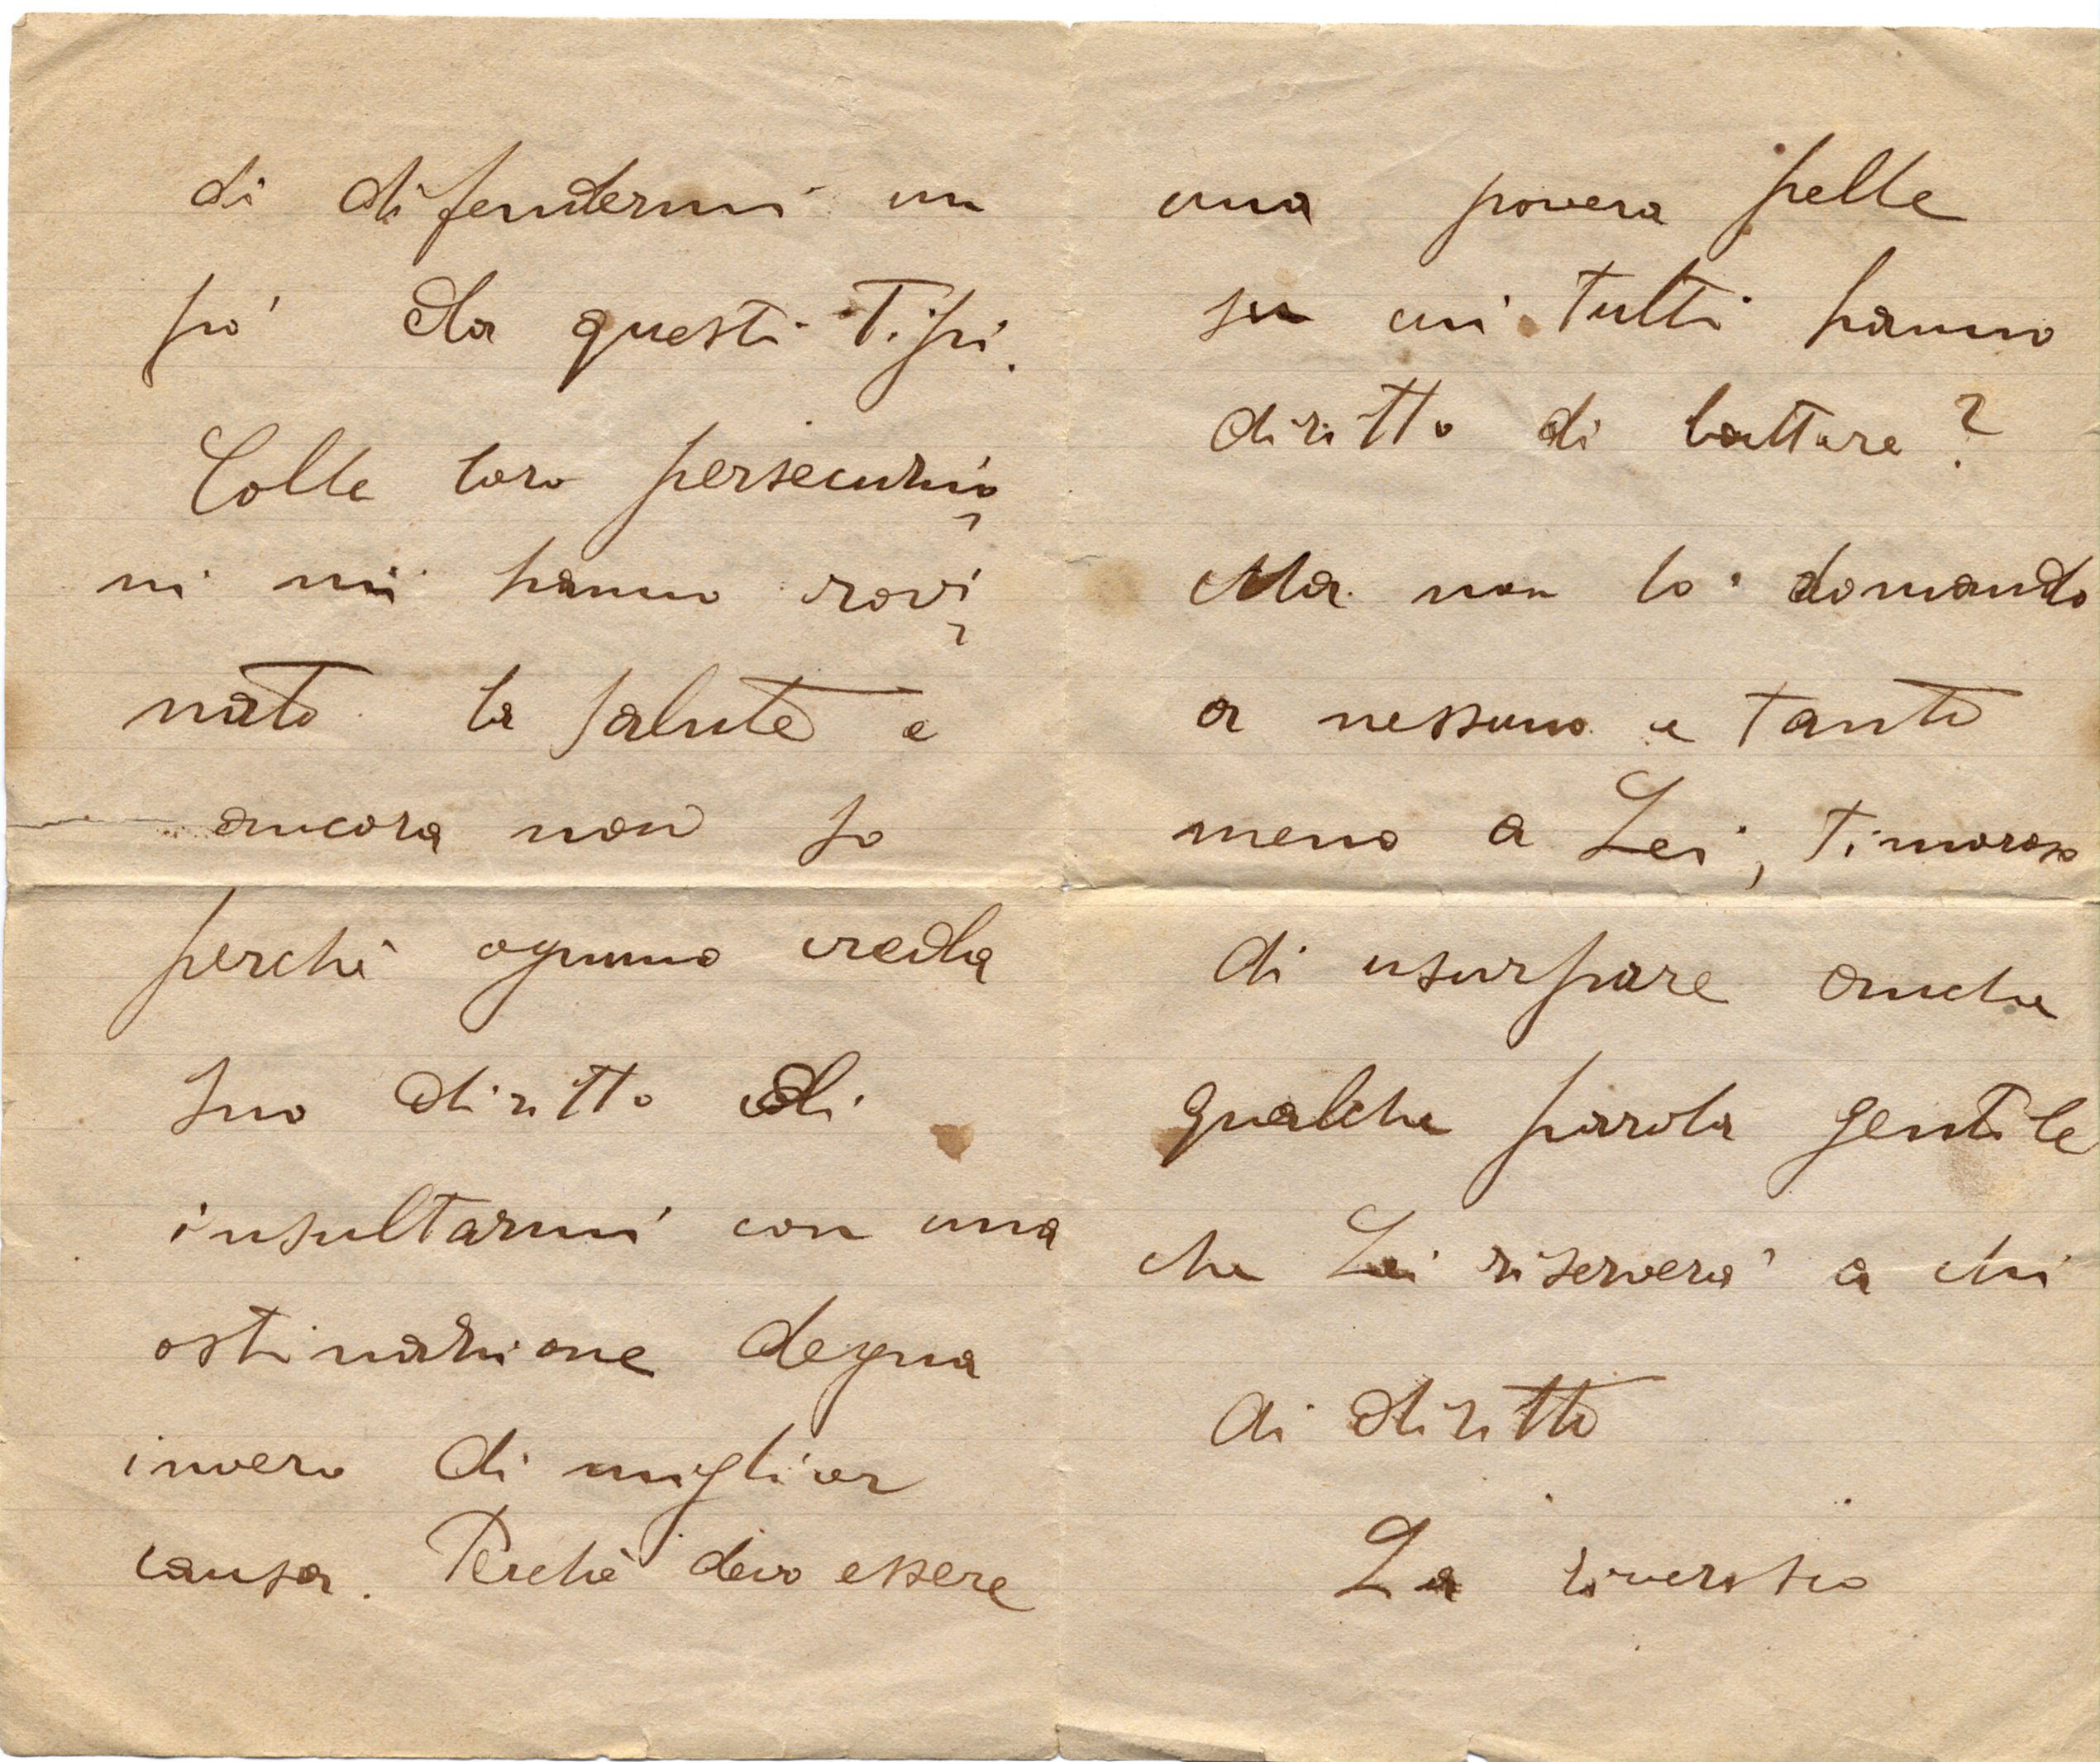 di difendermi un
pò da questi tipi.
Colle loro persecuzio
ni mi hanno rovi
nato la salute e
ancora non so
perchè ognuno creda
suo diritto di
insultarmi con una
ostinazione degna
invero di miglior
causa. Perchè devo essere
una povera pelle
su cui tutti hanno
diritto di battere?
Ma non lo domando
a nessuno e tanto
meno a Lei, timoroso
di usurpare anche
qualche parola gentile
che Lei riserverà a chi
di diritto
La riverisco